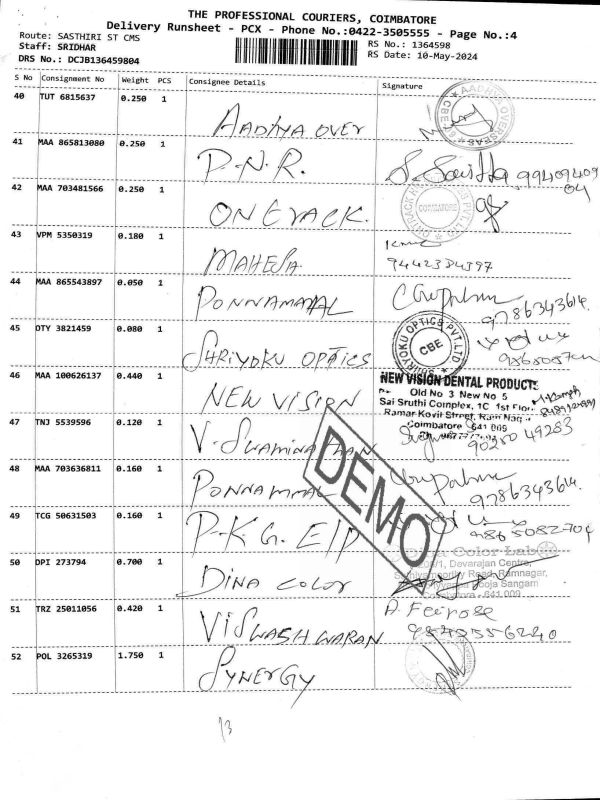 THE PROFESSIONAL COURIERS, COIMBATORE
Delivery Runsheet - PCX - Phone No.:0422-3505555 - Page No.:4
Route: SASTHIRI ST CMS
Staff: SRIDHAR
DRS No.: DCJB136459804
RS No.: 1364598
RS Date: 10-May-2024
S No Consignment No Weight PCS Consignee Details Signature
40 TUT 6815637 0.250 1 AADHYA OVER
41 MAA 865813080 0.250 1 P.N.R.
42 MAA 703481566 0.250 1 ONTRACK.
COIMBATORE
43 VPM 5350319 0.180 1 MAHESA
9442334397
44 MAA 865543897 0.050 1 PONNAMMAL
9786343614.
45 OTY 3821459 0.080 1 SHRIYOKU OPTICS
SHRIYOKU OPTICS PVT.LTD
CBE
46 MAA 100626137 0.440 1 NEW VISION
NEW VISION DENTAL PRODUCTS
Old No 3 New No 5
Sai Sruthi Complex, 1C 1st Floor
Ramar Kovil Street, Ram Nagar
Coimbatore 641 009
47 TNJ 5539596 0.120 1 V. SWAMINATHAN
90250 49283
48 MAA 703636811 0.160 1 PONNAMMAL
9786343614.
DEMO
49 TCG 50631503 0.160 1 P.K.G. EIP
9865082704
Color Lab
Devarajan Centre,
Road, Ramnagar,
Pooja Sangam
Coimbatore - 641 009
50 DPI 273794 0.700 1 DINA COLOR
51 TRZ 25011056 0.420 1 VISWASHWARAN
A. Feirose
52 POL 3265319 1.750 1 SYNERGY
13